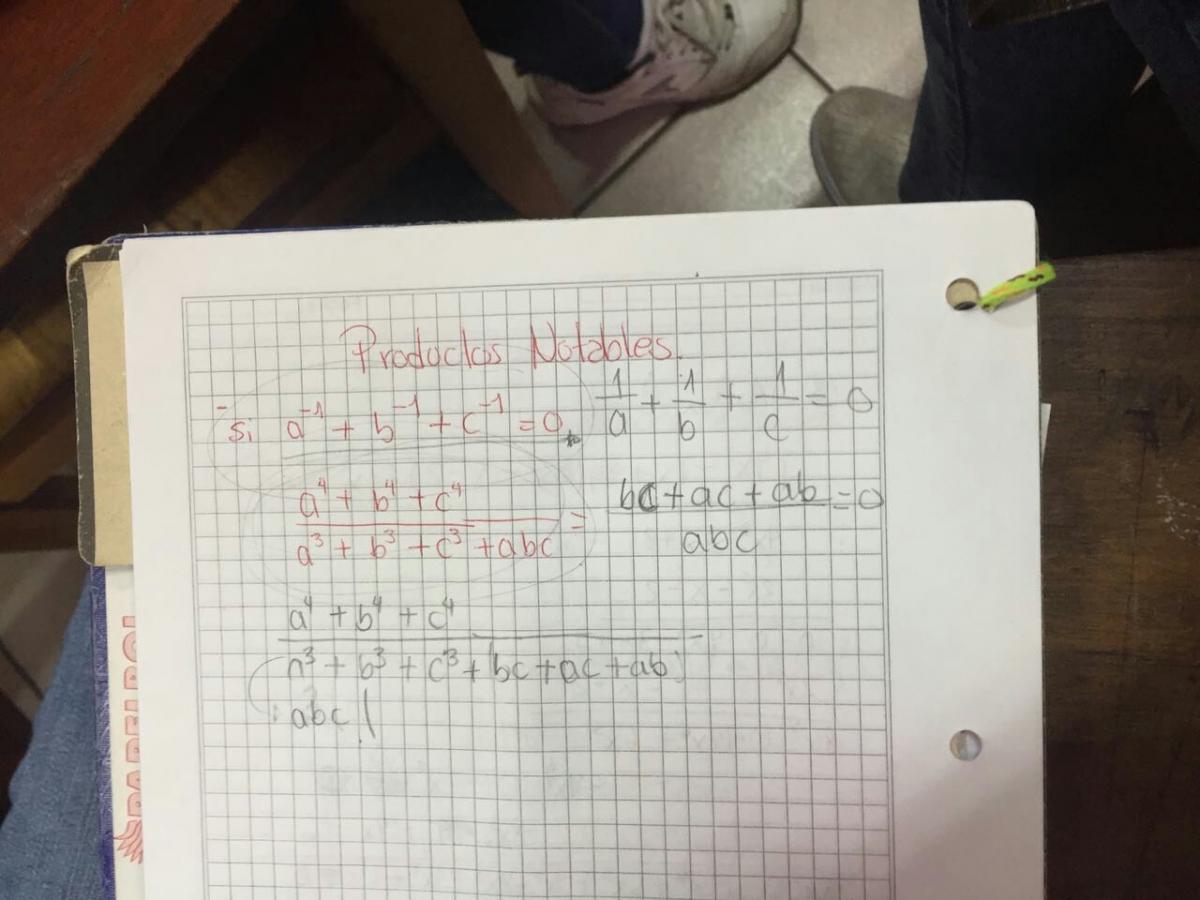 Productos Notables.
- Si a⁻¹ + b⁻¹ + c⁻¹ = 0,
1/a + 1/b + 1/c = 0
(a⁴ + b⁴ + c⁴)/(a³ + b³ + c³ + abc) =
(bc + ac + ab)/abc = 0
a⁴ + b⁴ + c⁴
a³ + b³ + c³ + bc + ac + ab
abc